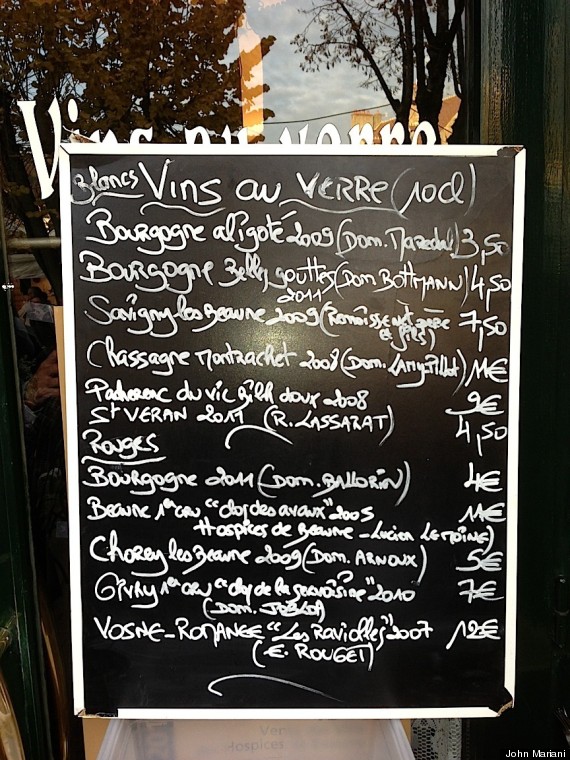 Vins au verre
Blancs Vins au VERRE (10cl)
Bourgogne aligoté 2009 (Dom. 3,50
Bourgogne Belly gouttes (Dom BOTTMANN) 4,50
2011
Savigny les Beaune 2009 (Remoissenet père 7,50
et fils)
Chassagne Montrachet 2008 (Dom. Lamy-Pillot) 11€
Pacherenc du vic bilh doux 2008 9€
St VERAN 2011 (R. LASSARAT) 4,50
ROUGES
Bourgogne 2011 (Dom. BALLORIN) 4€
Beaune 1er CRU "clos des avaux" 2005 11€
Hospices de Beaune - Lucien LEMOINE)
Chorey les Beaune 2009 (Dom. ARNOUX) 5€
GIVRY 1er CRU "clos de la servoisine" 2010 7€
(Dom. JOBLOT)
VOSNE-ROMANEE "Les Raviolles" 2007 12€
(E. ROUGET)
Ven
Hospices
John Mariani